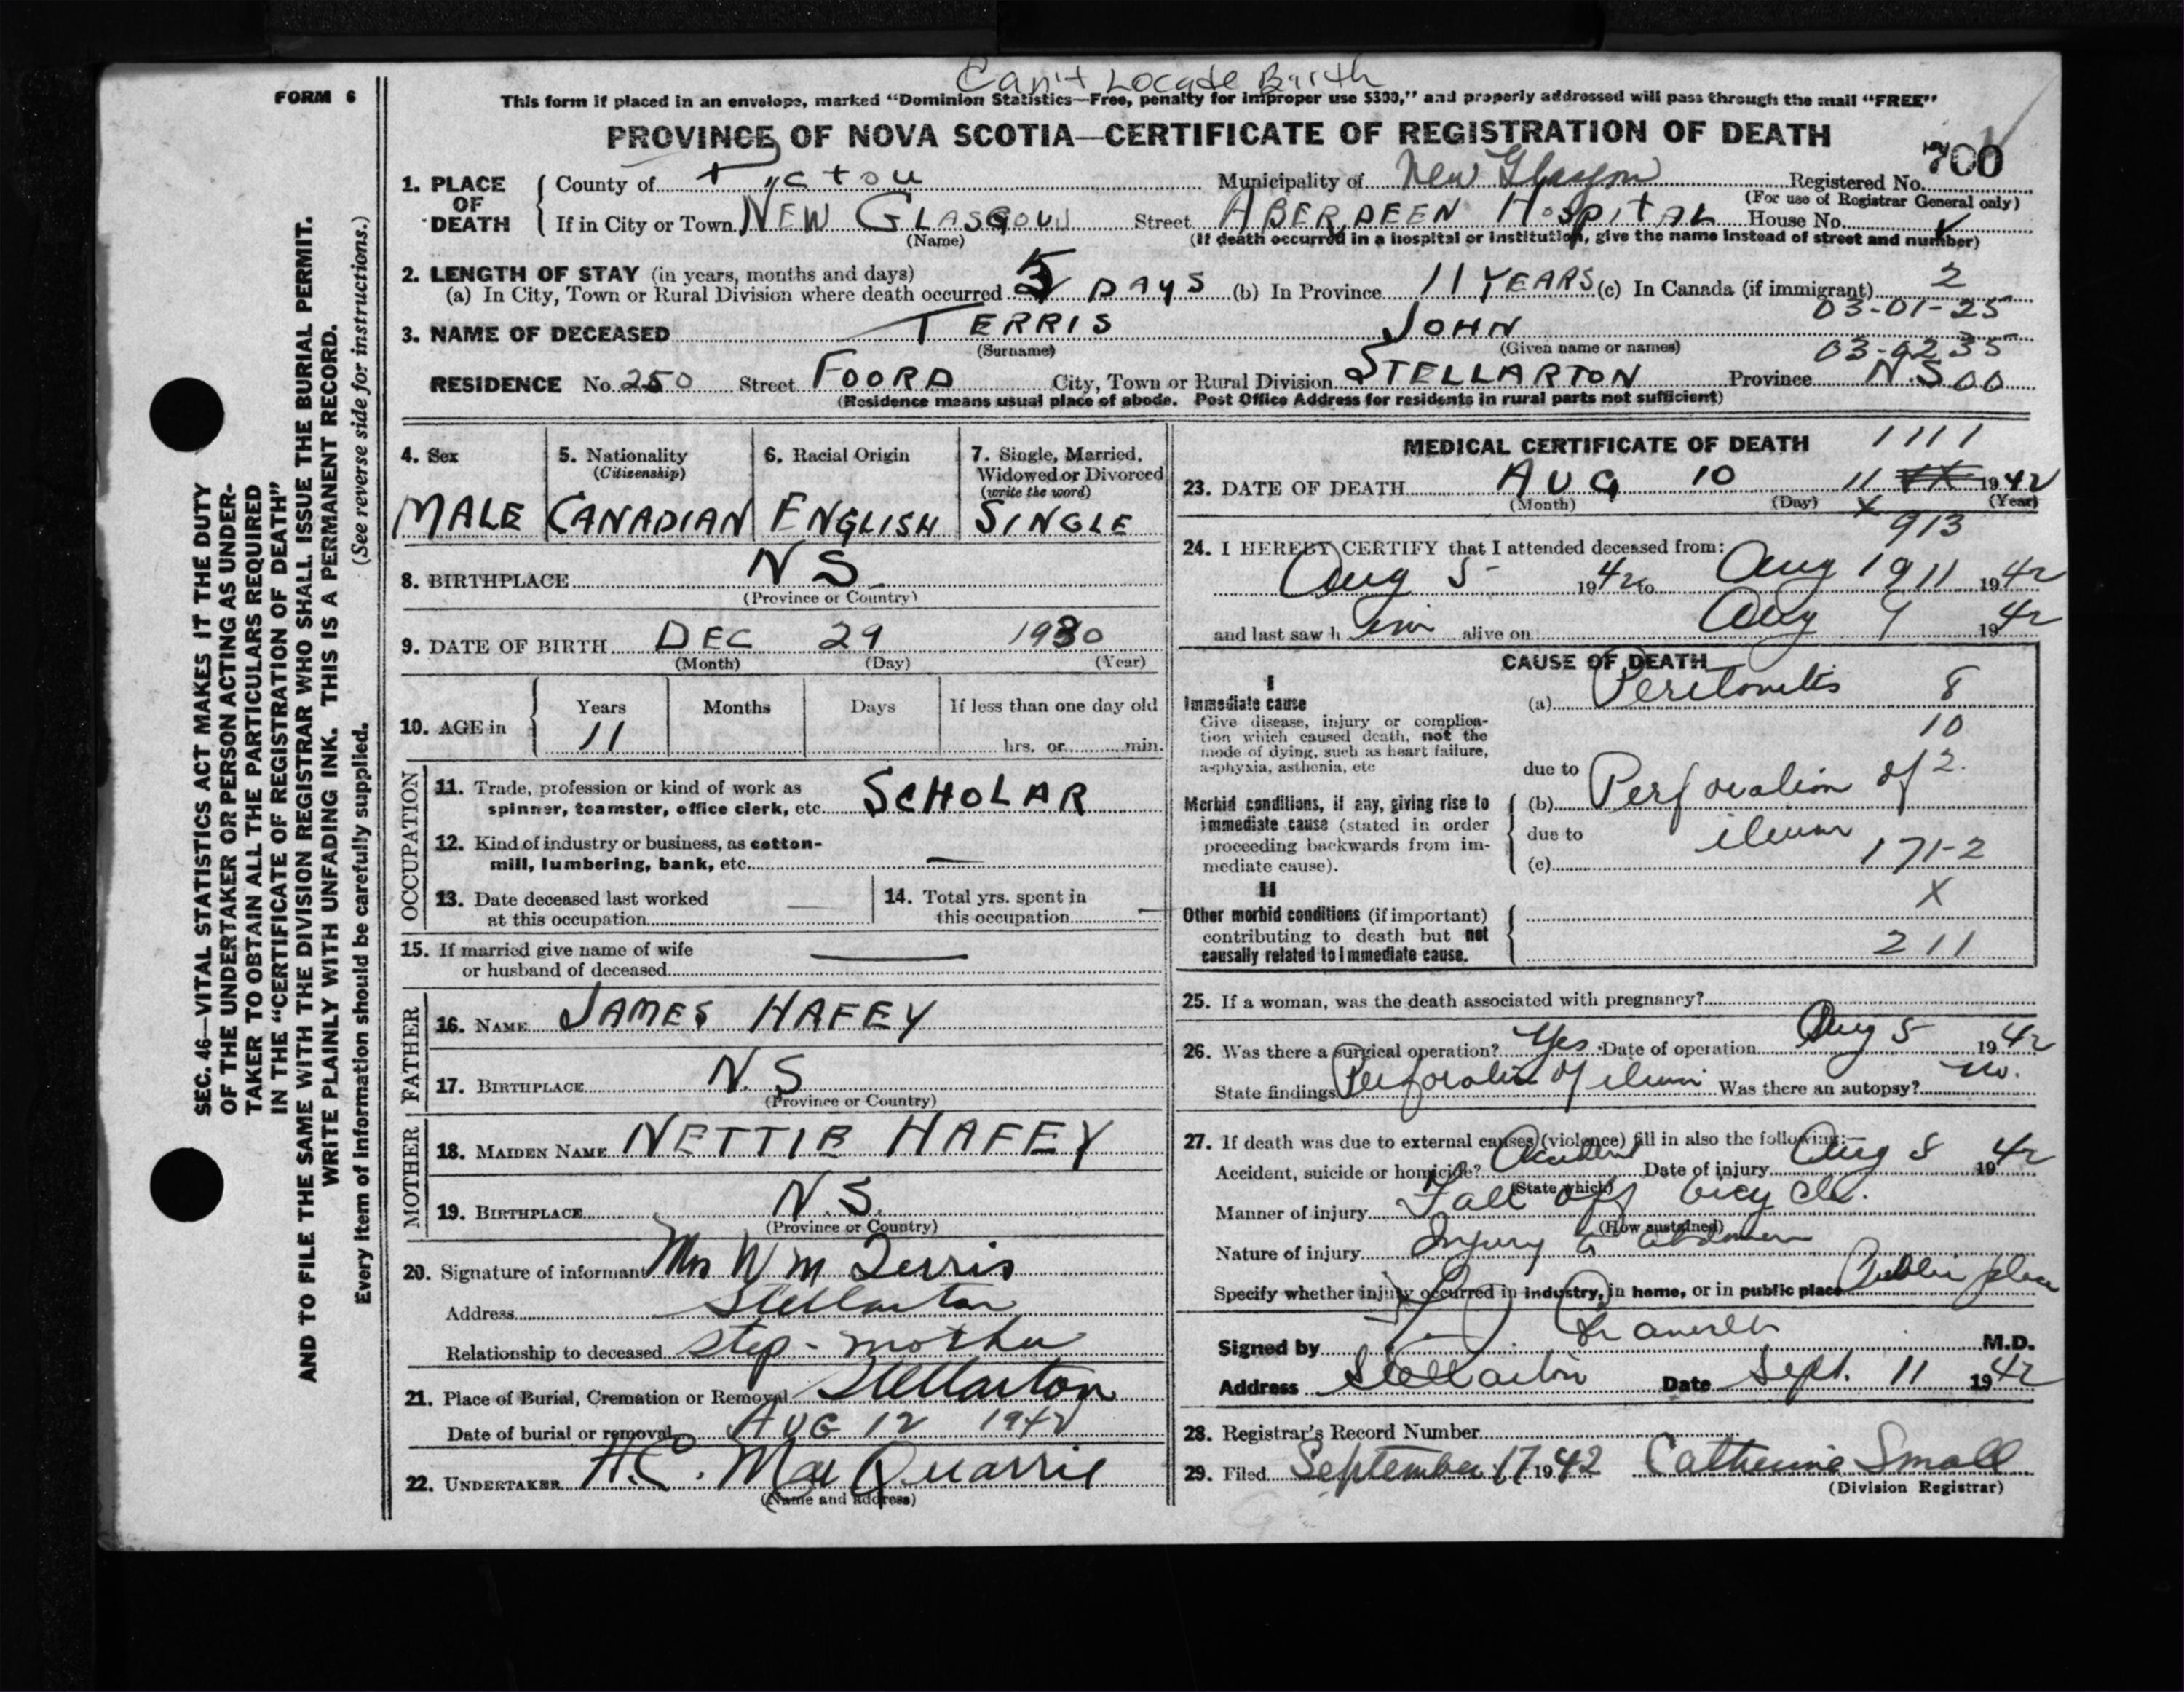 Can't Locate Birth
FORM 6
This form if placed in an envelope, marked "Dominion Statistics—Free, penalty for improper use $300," and properly addressed will pass through the mail "FREE"
PROVINCE OF NOVA SCOTIA—CERTIFICATE OF REGISTRATION OF DEATH
700
1. PLACE OF DEATH
County of Pictou Municipality of New Glasgow Registered No.
(For use of Registrar General only)
If in City or Town NEW GLASGOW Street ABERDEEN HOSPITAL House No.
(Name) (If death occurred in a hospital or institution, give the name instead of street and number)
2. LENGTH OF STAY (in years, months and days)
(a) In City, Town or Rural Division where death occurred 5 DAYS (b) In Province 11 YEARS (c) In Canada (if immigrant) 2
03-01-25
3. NAME OF DECEASED TERRIS JOHN
(Surname) (Given name or names)
03-0235
RESIDENCE No. 250 Street FOORD City, Town or Rural Division STELLARTON Province N.S 00
(Residence means usual place of abode. Post Office Address for residents in rural parts not sufficient)
4. Sex
MALE
5. Nationality
(Citizenship)
CANADIAN
6. Racial Origin
ENGLISH
7. Single, Married,
Widowed or Divorced
(write the word)
SINGLE
8. BIRTHPLACE N S.
(Province or Country)
9. DATE OF BIRTH DEC 29 1930
(Month) (Day) (Year)
10. AGE in
Years Months Days If less than one day old
11 hrs. or min.
OCCUPATION
11. Trade, profession or kind of work as
spinner, teamster, office clerk, etc. SCHOLAR
12. Kind of industry or business, as cotton-
mill, lumbering, bank, etc. —
13. Date deceased last worked
at this occupation —
14. Total yrs. spent in
this occupation —
15. If married give name of wife
or husband of deceased —
FATHER
16. NAME JAMES HAFEY
17. BIRTHPLACE N.S
(Province or Country)
MOTHER
18. MAIDEN NAME NETTIE HAFEY
19. BIRTHPLACE N.S.
(Province or Country)
20. Signature of informant Mrs Wm Terris
Address Stellarton
Relationship to deceased step-mother
21. Place of Burial, Cremation or Removal Stellarton
Date of burial or removal AUG 12 1942
22. UNDERTAKER H.C. MacQuarrie
(Name and address)
MEDICAL CERTIFICATE OF DEATH
1111
23. DATE OF DEATH AUG 10 11 1942
(Month) (Day) (Year)
X
913
24. I HEREBY CERTIFY that I attended deceased from:
Aug 5 1942 to Aug 1911 1942
and last saw him alive on Aug 9 1942
CAUSE OF DEATH
I
Immediate cause
Give disease, injury or complica-
tion which caused death, not the
mode of dying, such as heart failure,
asphyxia, asthenia, etc
(a) Peritonitis 8
10
due to
Morbid conditions, if any, giving rise to
immediate cause (stated in order
proceeding backwards from im-
mediate cause).
(b) Perforation of 2.
due to ileum
(c) 171-2
II
Other morbid conditions (if important)
contributing to death but not
causally related to immediate cause.
X
211
25. If a woman, was the death associated with pregnancy?
26. Was there a surgical operation? Yes Date of operation Aug 5 1942
State findings Perforation of ileum Was there an autopsy? No.
27. If death was due to external causes (violence) fill in also the following:—
Accident, suicide or homicide? Accident Date of injury Aug 5 1942
(State which)
Manner of injury Fall off bicycle.
(How sustained)
Nature of injury Injury to abdomen
Specify whether injury occurred in industry, in home, or in public place Public place
Signed by M.D.
Address Stellarton Date Sept. 11 1942
28. Registrar's Record Number
29. Filed September 17 1942 Catherine Small
(Division Registrar)
SEC. 46—VITAL STATISTICS ACT MAKES IT THE DUTY
OF THE UNDERTAKER OR PERSON ACTING AS UNDER-
TAKER TO OBTAIN ALL THE PARTICULARS REQUIRED
IN THE "CERTIFICATE OF REGISTRATION OF DEATH"
AND TO FILE THE SAME WITH THE DIVISION REGISTRAR WHO SHALL ISSUE THE BURIAL PERMIT.
WRITE PLAINLY WITH UNFADING INK. THIS IS A PERMANENT RECORD.
Every item of information should be carefully supplied. (See reverse side for instructions.)